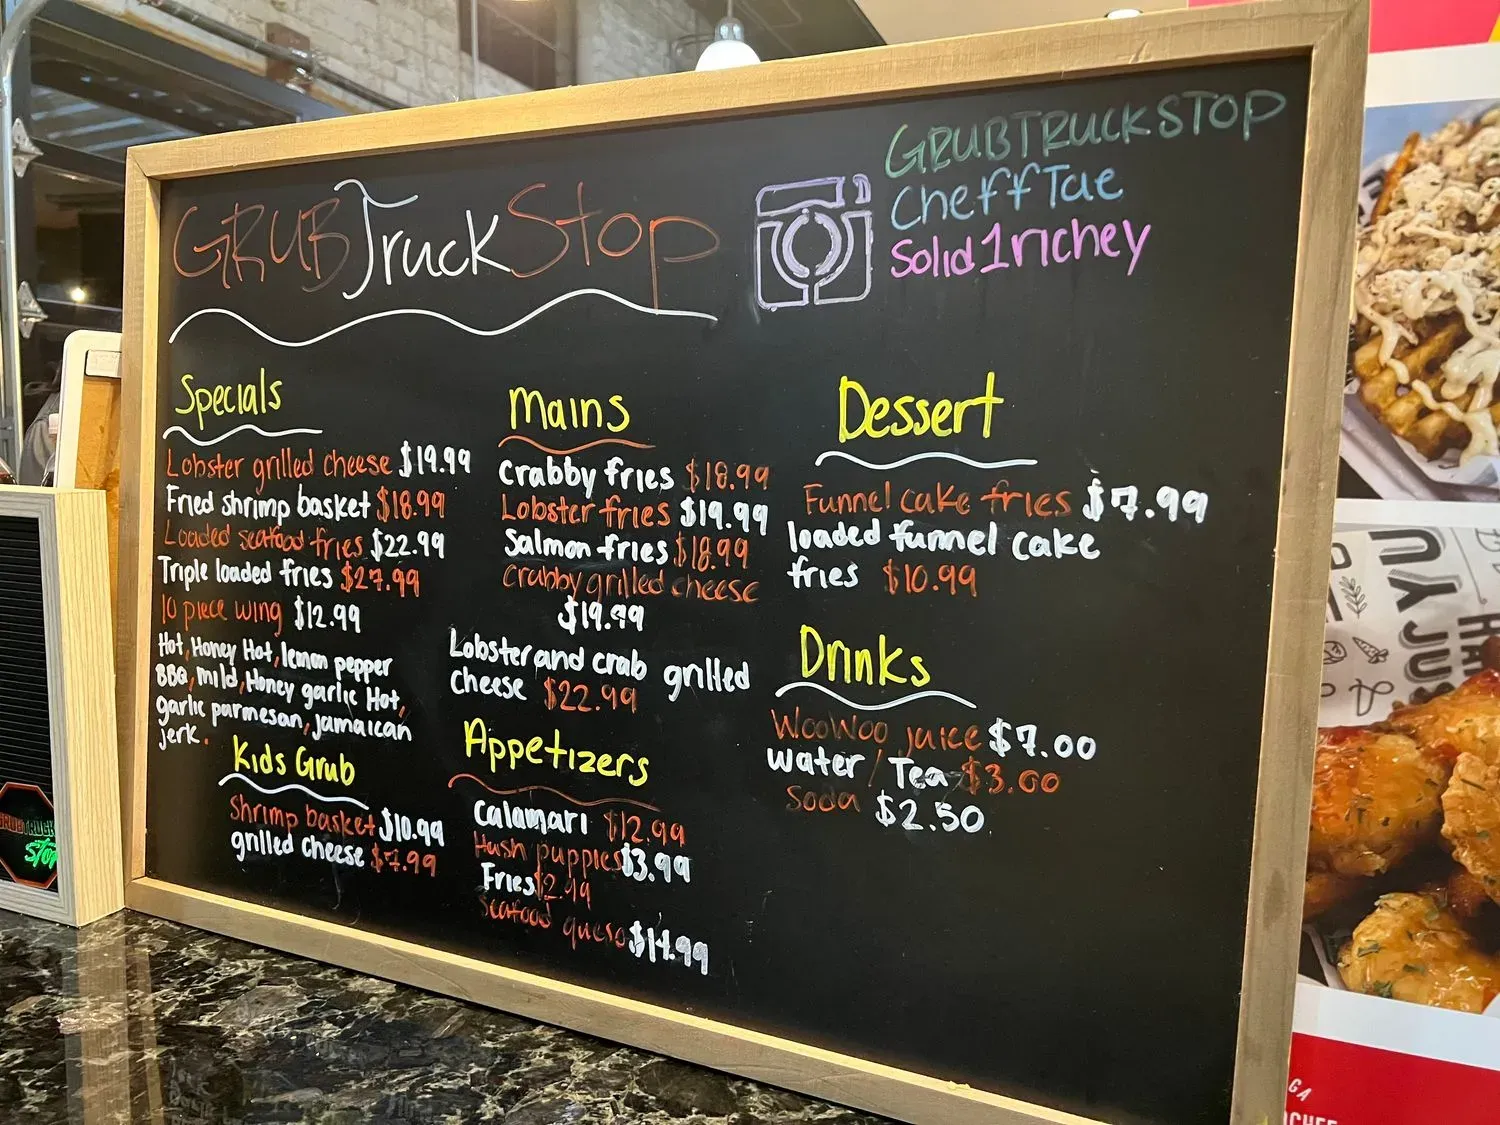 GRUBTruckStop
GRUBTRUCKSTOP
CheffTae
Solid1richey
Specials
Lobster grilled cheese $19.99
Fried shrimp basket $18.99
Loaded seafood fries $22.99
Triple loaded fries $27.99
10 piece wing $12.99
Hot, Honey Hot, lemon pepper
BBQ, mild, Honey garlic Hot,
garlic parmesan, jamaican
jerk.
Kids Grub
Shrimp basket $10.99
grilled cheese $7.99
Mains
Crabby fries $18.99
Lobster fries $19.99
Salmon fries $18.99
Crabby grilled cheese
$19.99
Lobster and crab grilled
cheese $22.99
Appetizers
Calamari $12.99
Hush puppies $3.99
Fries $2.99
Seafood queso $14.99
Dessert
Funnel cake fries $7.99
loaded funnel cake
fries $10.99
Drinks
WooWoo juice $7.00
water / Tea $3.00
Soda $2.50
GRUBTRUCK
STOP
JUS